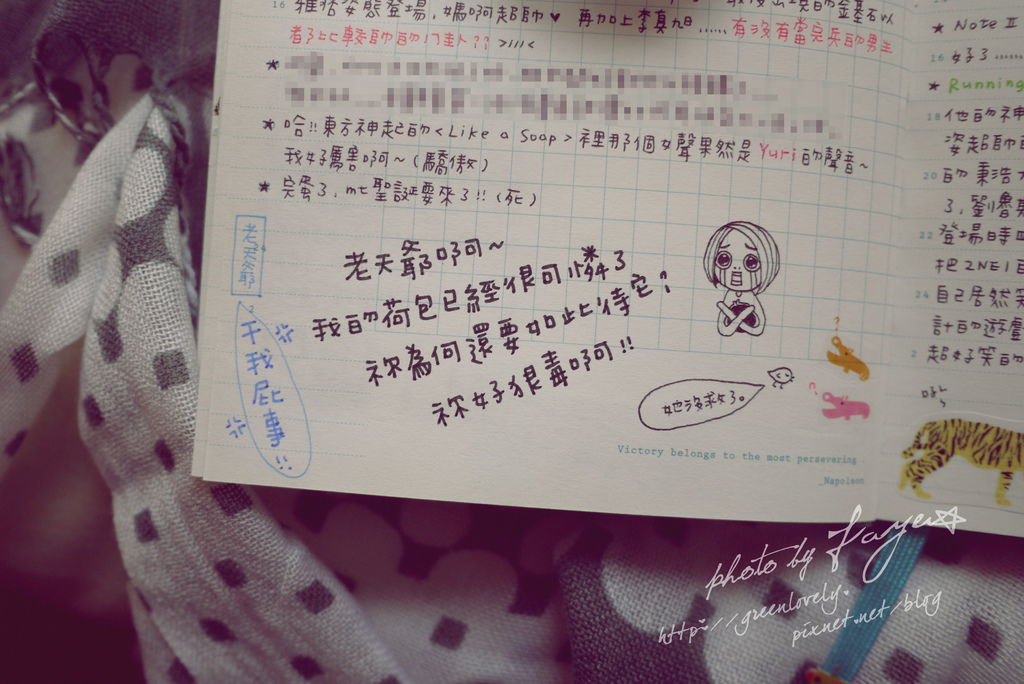 16 雅括姿態登場,媽啊超帥♥ 再加上李真旭......有沒有當完兵的男生
都比較帥的八卦?? >///<
★ 哈!!東方神起的<Like a Soap>裡那個女聲果然是Yuri的聲音~
我好厲害啊~(驕傲)
★ 完蛋了,mt聖誕要來了!!(死)
老天爺
老天爺啊~
我的荷包已經很可憐了
祢為何還要如此待它?
祢好狠毒啊!!
干我屁事!!
她沒救了。
Victory belongs to the most persevering
_Napoleon
★ Note II
16 好了......
★ Running
18 他的神
姿超帥的
20 的 秉浩
了,劉魯
22 登場時
把2NE1
24 自己居然
計的遊戲
2 超好笑的
photo by Faye☆
http://greenlovely.
pixnet.net/blog